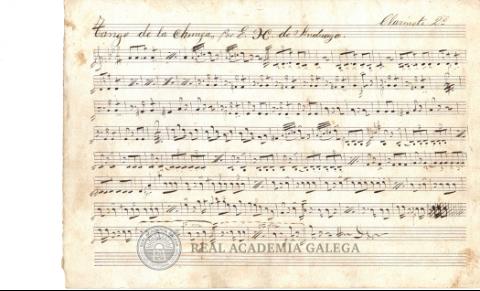 Clarinete 2º
4
Tango de la Chunga, Por E. H. de Anduaga.
REAL ACADEMIA GALEGA